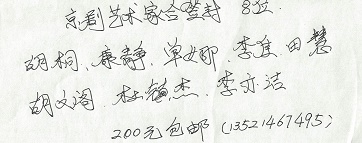 京剧艺术家合签封 8位
胡桐、康静、单娜、李隹、田慧
胡文阁、杜镇杰、李亦洁
200元包邮 (13521467495)